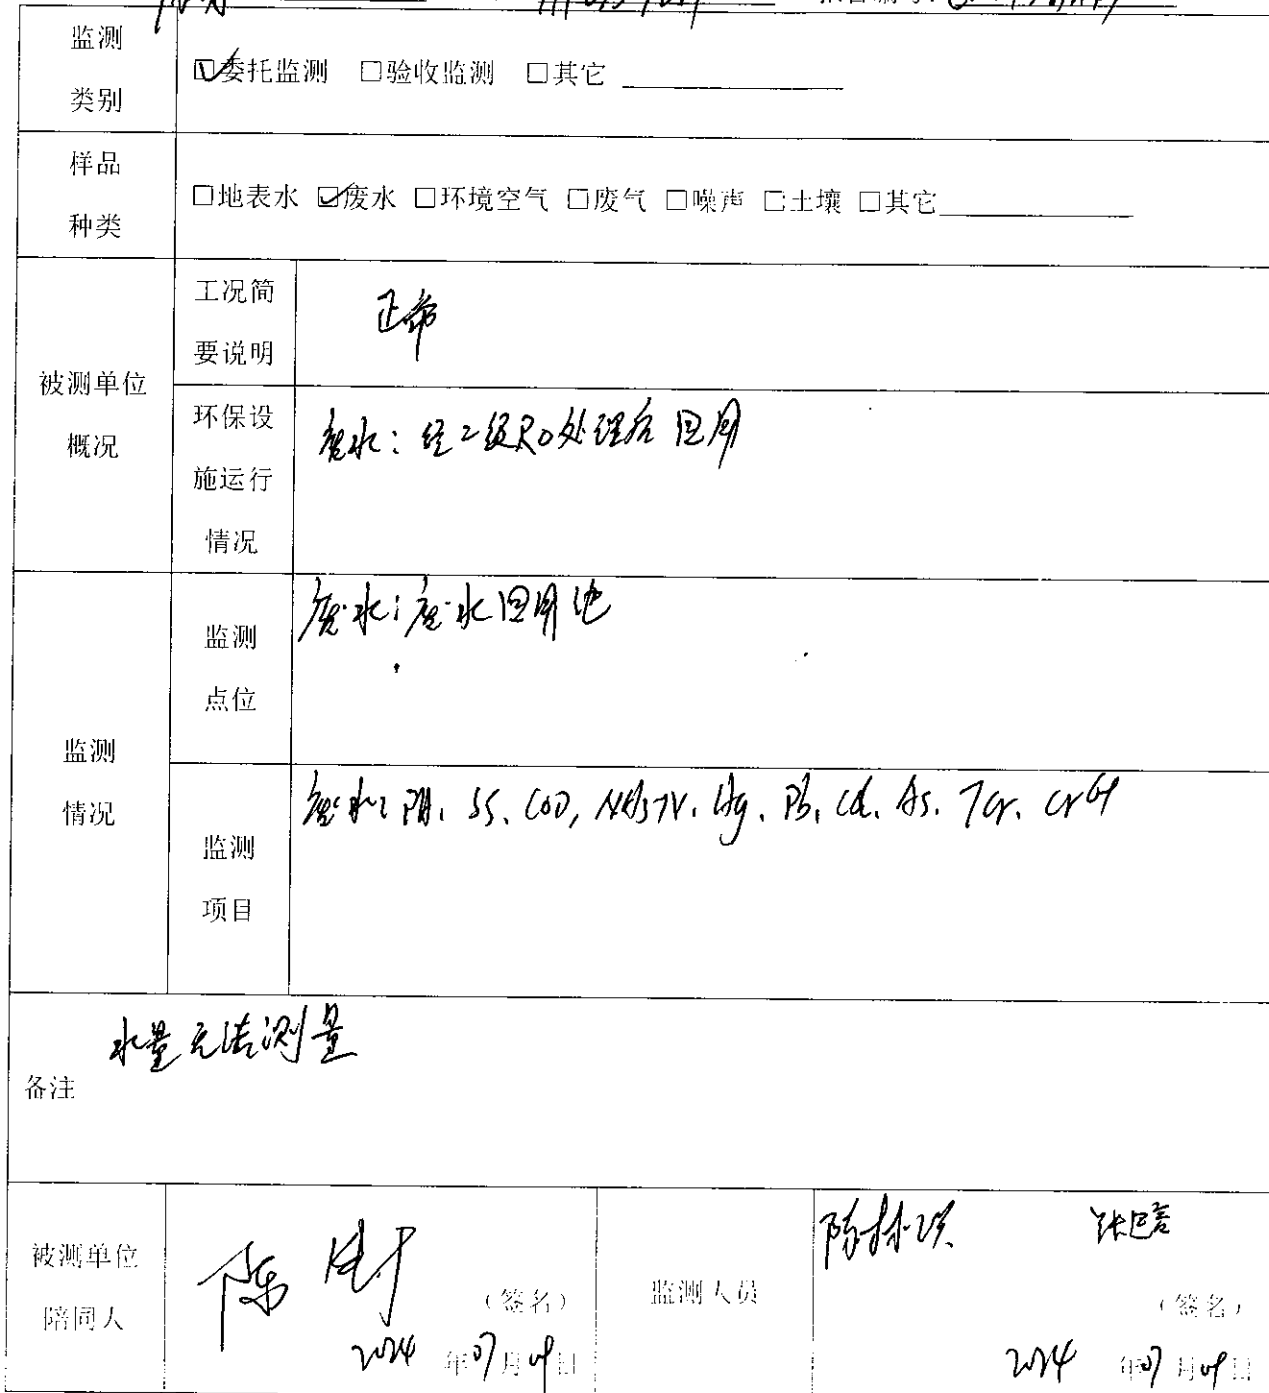 监测
类别
☑委托监测 □验收监测 □其它
样品
种类
□地表水 ☑废水 □环境空气 □废气 □噪声 □土壤 □其它
被测单位
概况
工况简
要说明
正常
环保设
施运行
情况
废水：经二级RO处理后回用
监测
情况
监测
点位
废水：废水回用池
监测
项目
废水：pH、SS、COD、NH3-N、Hg、Pb、Cd、As、TCr、Cr6+
备注
水量无法测量
被测单位
陪同人
陈
（签名）
2024 年07月09日
监测人员
（签名）
2024 年07月09日